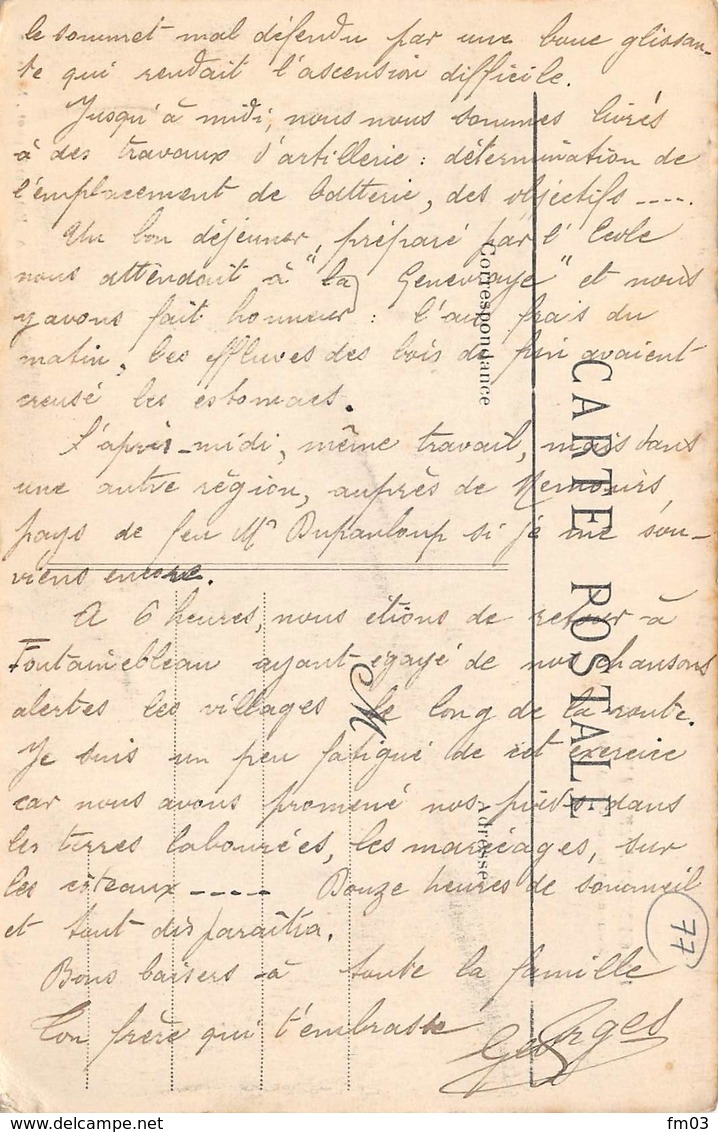 le sommet mal défendu par une boue glissan-
te qui rendait l'ascension difficile.
Jusqu'à midi, nous nous sommes livrés
à des travaux d'artillerie : détermination de
l'emplacement de batterie, des objectifs ----.
Un bon déjeuner, préparé par l'Ecole
nous attendait à "la Genevraye" et nous
y avons fait honneur : l'air frais du
matin, les effluves des bois de pin avaient
creusé les estomacs.
L'après-midi, même travail, mais dans
une autre région, auprès de Nemours,
pays de feu Mr Dupanloup si je me sou-
viens encore.
A 6 heures, nous étions de retour à
Fontainebleau ayant égayé de nos chansons
alertes les villages le long de la route.
Je suis un peu fatigué de cet exercice
car nous avons promené nos pieds dans
les terres labourées, les marécages, sur
les coteaux ---- Douze heures de sommeil
et tout disparaîtra.
Bons baisers à toute la famille
Ton frère qui t'embrasse
Georges
CARTE POSTALE
Correspondance
Adresse
M
77
fm03